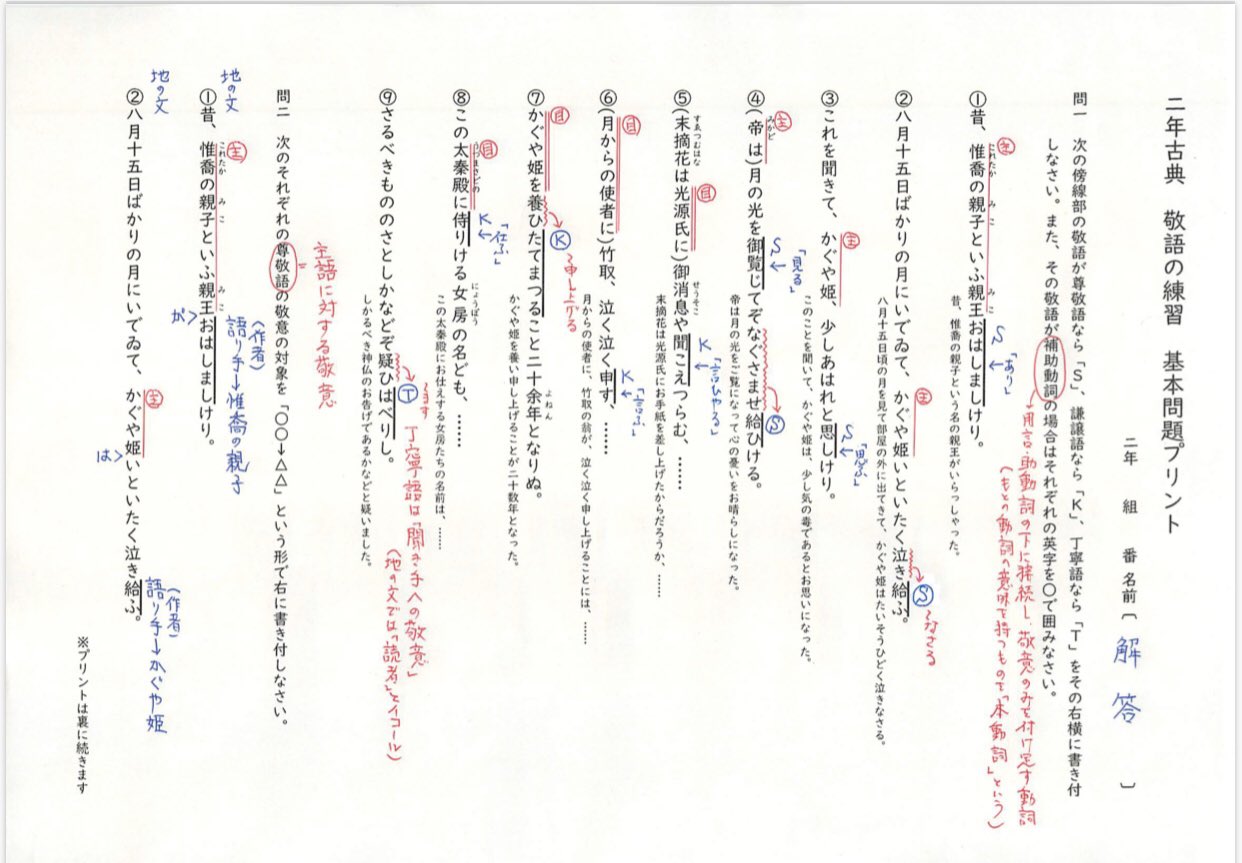 二年古典 敬語の練習 基本問題プリント
二年 組 番 名前〔 解答 〕
問一 次の傍線部の敬語が尊敬語なら「S」、謙譲語なら「K」、丁寧語なら「T」をその右横に書き付
しなさい。また、その敬語が補助動詞の場合はそれぞれの英字を〇で囲みなさい。
用言・助動詞の下に接続し、敬意のみを付け足す動詞
(もとの動詞の意味を持つもので「本動詞」という)
主
これたか みこ みこ
①昔、惟喬の親子といふ親王おはしましけり。
S ←「あり」
昔、惟喬の親子という名の親王がいらっしゃった。
主
②八月十五日ばかりの月にいでゐて、かぐや姫いといたく泣き給ふ。
S ～なさる
八月十五日頃の月を見て部屋の外に出てきて、かぐや姫はたいそうひどく泣きなさる。
主
③これを聞きて、かぐや姫、少しあはれと思しけり。
S ←「思ふ」
このことを聞いて、かぐや姫は、少し気の毒であるとお思いになった。
主
みかど
④(帝は)月の光を御覧じてぞなぐさませ給ひける。
S ←「見る」
S
帝は月の光をご覧になって心の憂いをお晴らしになった。
目
すゑつむはな せうそこ
⑤(末摘花は光源氏に)御消息や聞こえつらむ、……
K ←「言ひやる」
末摘花は光源氏にお手紙を差し上げたからだろうか、……
目
⑥(月からの使者に)竹取、泣く泣く申す、……
K ←「言ふ」
月からの使者に、竹取の翁が、泣く泣く申し上げることには、……
目
よねん
⑦かぐや姫を養ひたてまつること二十余年となりぬ。
K ～申し上げる
かぐや姫を養い申し上げることが二十数年となった。
目
うづまさどの にょうぼう
⑧この太秦殿に侍りける女房の名ども、……
K ←「仕ふ」
この太秦殿にお仕えする女房たちの名前は、……
⑨さるべきもののさとしかなどぞ疑ひはべりし。
T ～ます
しかるべき神仏のお告げであるかなどと疑いました。
丁寧語は「聞き手への敬意」
(地の文では「読者」とイコール)
問二 次のそれぞれの尊敬語の敬意の対象を「〇〇→△△」という形で右に書き付しなさい。
主語に対する敬意
地の文
主
これたか みこ みこ
①昔、惟喬の親子といふ親王おはしましけり。
が>
(作者)
語り手→惟喬の親子
地の文
主
②八月十五日ばかりの月にいでゐて、かぐや姫いといたく泣き給ふ。
は>
(作者)
語り手→かぐや姫
※プリントは裏に続きます